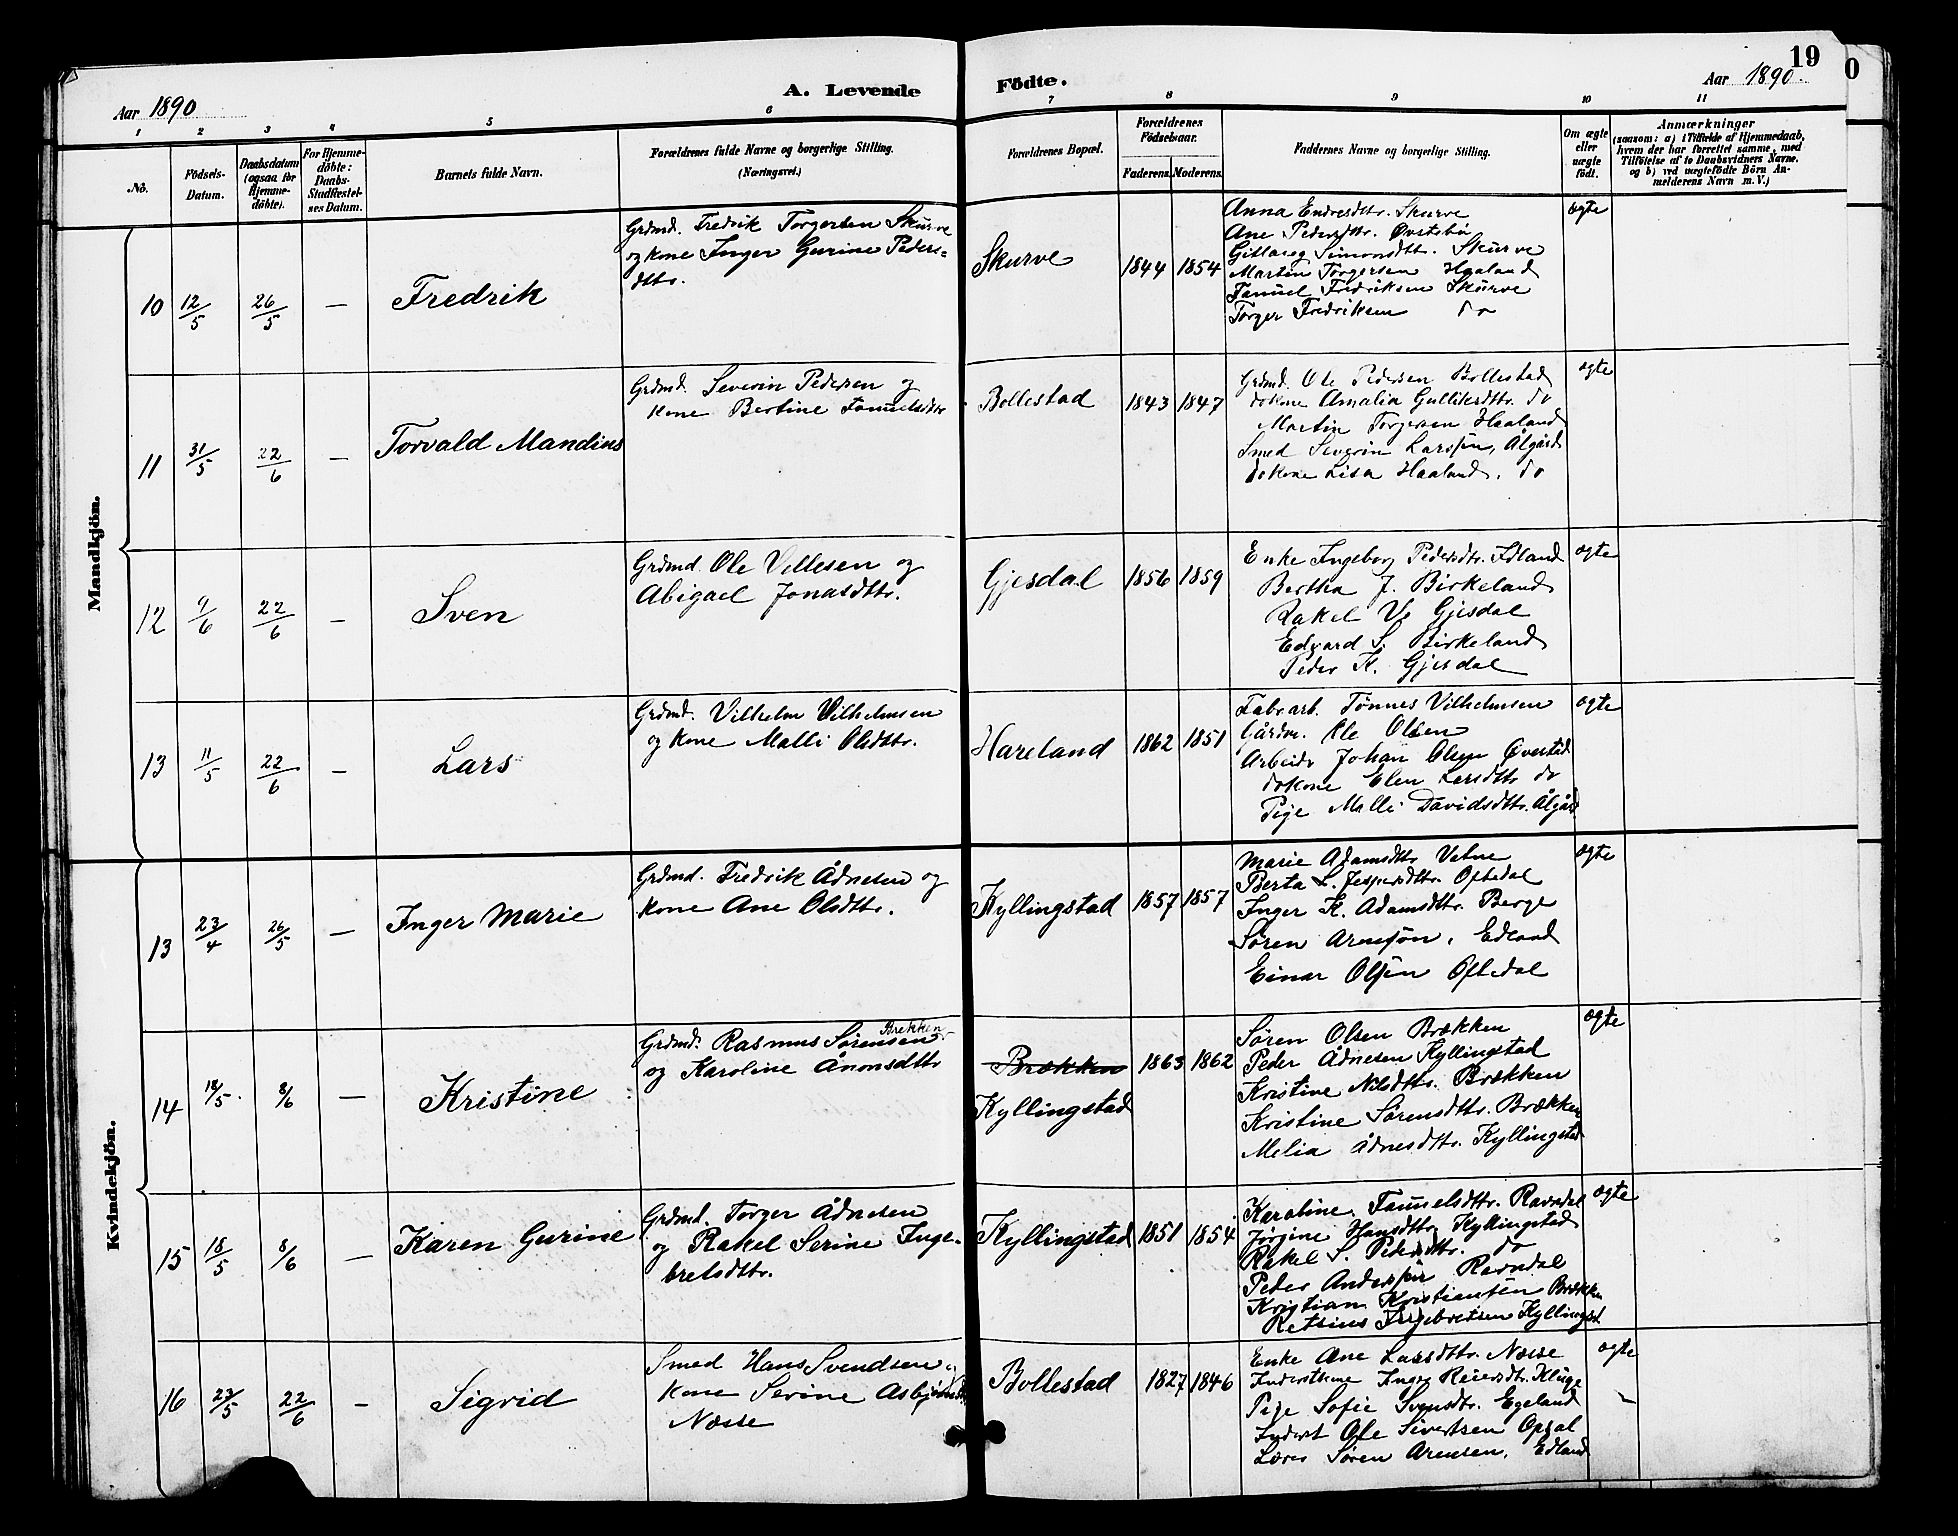 19
0
Aar 1890
A. Levende
Födte.
Aar 1890.
1 2 3 4 5 6 7 8 9 10 11
No.
Födsels-Datum.
Daabsdatum (ogsaa for Hjemme-döbte).
For Hjemme-döbte: Daabs-Stadfæstel-ses Datum.
Barnets fulde Navn.
Forældrenes fulde Navne og borgerlige Stilling.
(Næringsvei.)
Forældrenes Bopæl.
Forældrenes Födselsaar.
Faderens. Moderens.
Faddernes Navne og borgerlige Stilling.
Om ægte eller uægte födt.
Anmærkninger
(saasom: a) i Tilfælde af Hjemmedaab,
hvem der har forrettet samme, med
Tilföielse af to Daabsvidners Navne.
og b) ved uægtefödte Börn An-
melderens Navn m. V.)
Mandkjön.
10 12/5 26/5 — Fredrik
Grdmd. Fredrik Torgersen Skurve
og kone Inger Gurine Peders-
dtr.
Skurve 1844 1854
Anna Endresdtr. Skurve
Ane Pedersdtr. Øvstebø
Gitlaug Simonsdtr. Skurve
Martin Torgersen Haaland
Tønnes Fredriksen Skurve
Torger Fredriksen do
ægte
11 31/5 22/6 — Torvald Mandius
Grdmd. Severin Pedersen og
kone Bertine Tønnesdtr
Bollestad 1843 1847
Grdmd. Ole Pedersen Bollestad
do kone Amalia Gulliksdtr. do
Martin Torgersen Haaland
Smed Severin Larssen, Ålgård
do kone Lisa Haaland. do
ægte
12 9/6 22/6 — Sven
Grdmd. Ole Villesen og
Abigael Jonasdtr.
Gjesdal 1856 1859
Enke Ingeborg Pedersdtr. Edland
Bertha J. Birkeland
Rakel V. Gjesdal
Edvard S. Birkeland
Peder K. Gjesdal
ægte
13 11/5 22/6 — Lars
Grdmd. Vilhelm Vilhelmsen
og kone Malli Olsdtr.
Hareland 1862 1851
Fabr.arb. Tønnes Vilhelmsen
Gårdm. Ole Olsen
Arbeidr Johan Olsen Øvsted
do kone Elen Larsdtr do
Pige Malli Davidsdtr. Ålgård
ægte
Kvindekjön.
13 23/4 26/5 — Inger Marie
Grdmd. Fredrik Ådnesen og
kone Ane Olsdtr.
Kyllingstad 1857 1857
Marie Adamsdtr Vatne
Berta L. Jespersdtr. Oftedal
Inger K. Adamsdtr. Berge
Søren Arnesøn. Edland
Einar Olsen Oftedal
ægte
14 18/5. 8/6 — Kristine
Brekken
Grdmd. Rasmus Sørensen
og Karoline Ånonsdtr
Brækken
Kyllingstad 1863 1862
Søren Olsen Brækken
Peder Ådnesen Kyllingstad
Kristine Nilsdtr. Brækken
Kristine Sørensdtr. Brækken
Melia Ådnesdtr. Kyllingstad
ægte
15 18/5 8/6 — Karen Gurine
Grdmd. Torger Ådnesen
og Rakel Serine Inge-
bretsdtr.
Kyllingstad 1851 1854
Karoline Tønnesdtr. Ravndal
Jørgine Hansdtr Kyllingstad
Rakel S. Pedersdtr. do
Peder Anderssen Ravndal
Kristian Kristiansen Brækken
Ingebretsen Kyllingst.
ægte
16 23/5 22/6 — Sigrid
Smed Hans Svendsen
kone Serine Asbjørnsdtr
Næsse
Bollestad 1827 1846
Enke Ane Larsdtr. Næsse
Inderstkone Inger Reiersdtr. Kluge
Pige Sofie Svensdtr. Egeland
Inderst Ole Sivertsen Opsal
Lærer Søren Arnesen. Edland
ægte